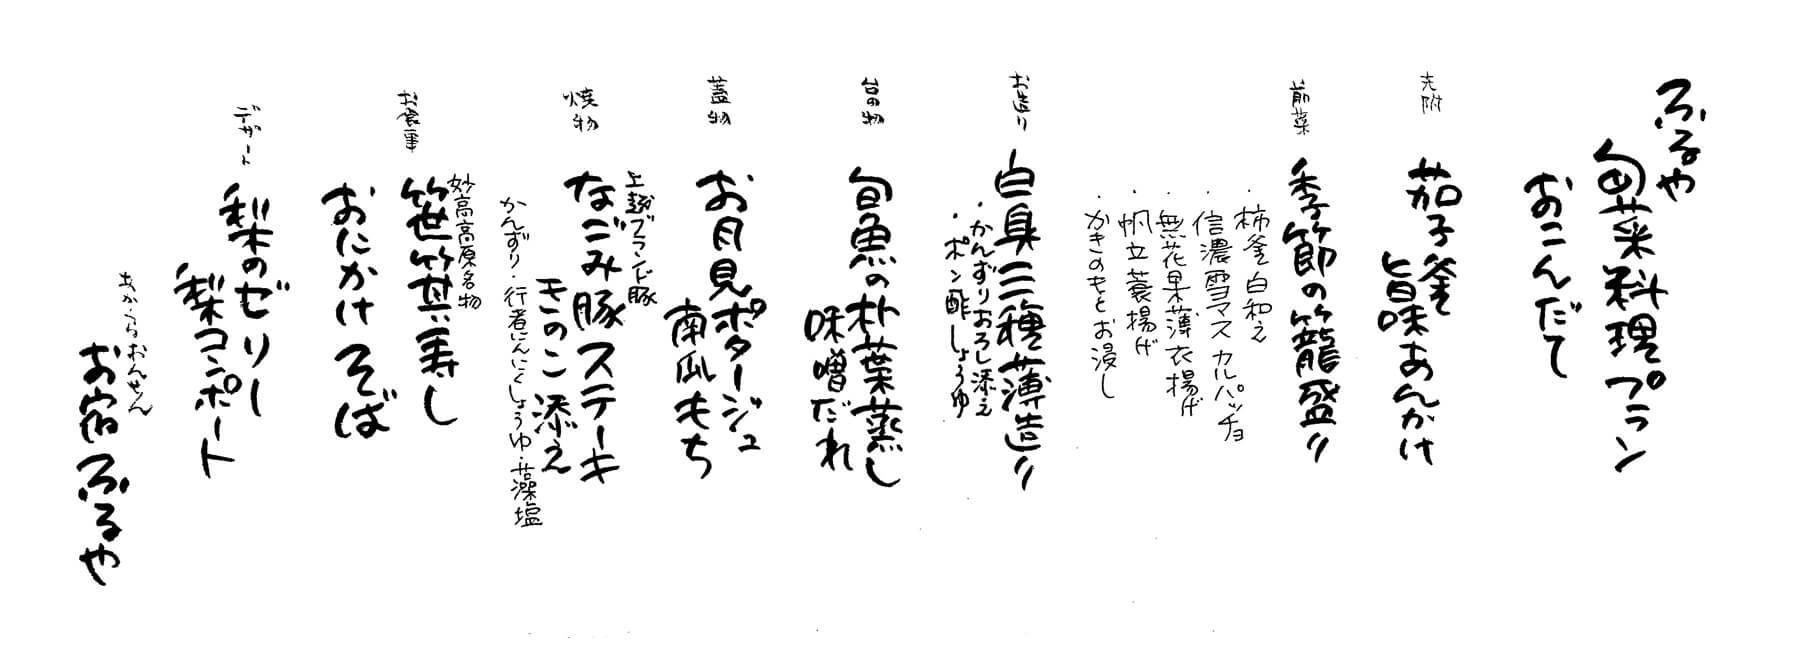 ふるや
旬菜料理プラン
おこんだて
先附
茄子釜
旨味あんかけ
前菜
季節の籠盛り
・柿釜白和え
・信濃雪マスカルパッチョ
・無花果薄衣揚げ
・帆立蓑揚げ
・かきのもとお浸し
お造り
白身三種薄造り
・かんずりおろし添え
・ポン酢しょうゆ
台の物
旬魚の朴葉蒸し
味噌だれ
蓋物
お月見ポタージュ
南瓜もち
焼物
上越ブランド豚
なごみ豚ステーキ
きのこ添え
かんずり・行者にんにくしょうゆ・藻塩
お食事
妙高高原名物
笹笥寿し
おにかけそば
デザート
梨のゼリー
梨コンポート
あかくらおんせん
お宿ふるや